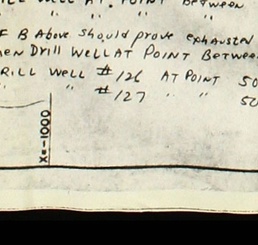 ILL WELL AT. POINT BETWEEN
" "
F B Above should prove exhausted
hen Drill WELL AT POINT BETWEE
RILL WELL #126 AT POINT 50
#127 " " 50
Xe-1000